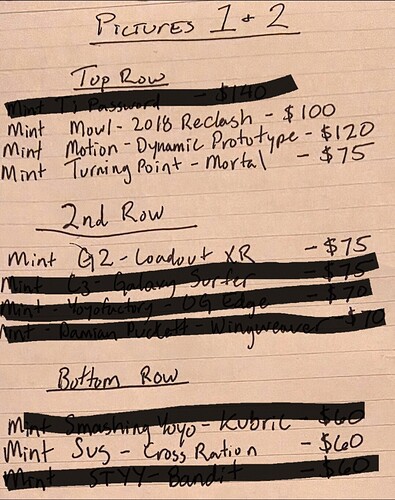 Pictures 1 & 2
Top Row
Mint Ti Password - $140
Mint Mowl - 2018 Reclash - $100
Mint Motion - Dynamic Prototype - $120
Mint Turning Point - Mortal - $75
2nd Row
Mint G2 - Loadout XR - $75
Mint C3 - Galaxy Surfer - $75
Mint - Yoyofactory - OG Edge - $70
Mint - Damian Puckett - Wingweaver $70
Bottom Row
Mint Smashing Yoyo - Kubric - $60
Mint Sug - Cross Ration - $60
Mint STYY - Bandit - $60